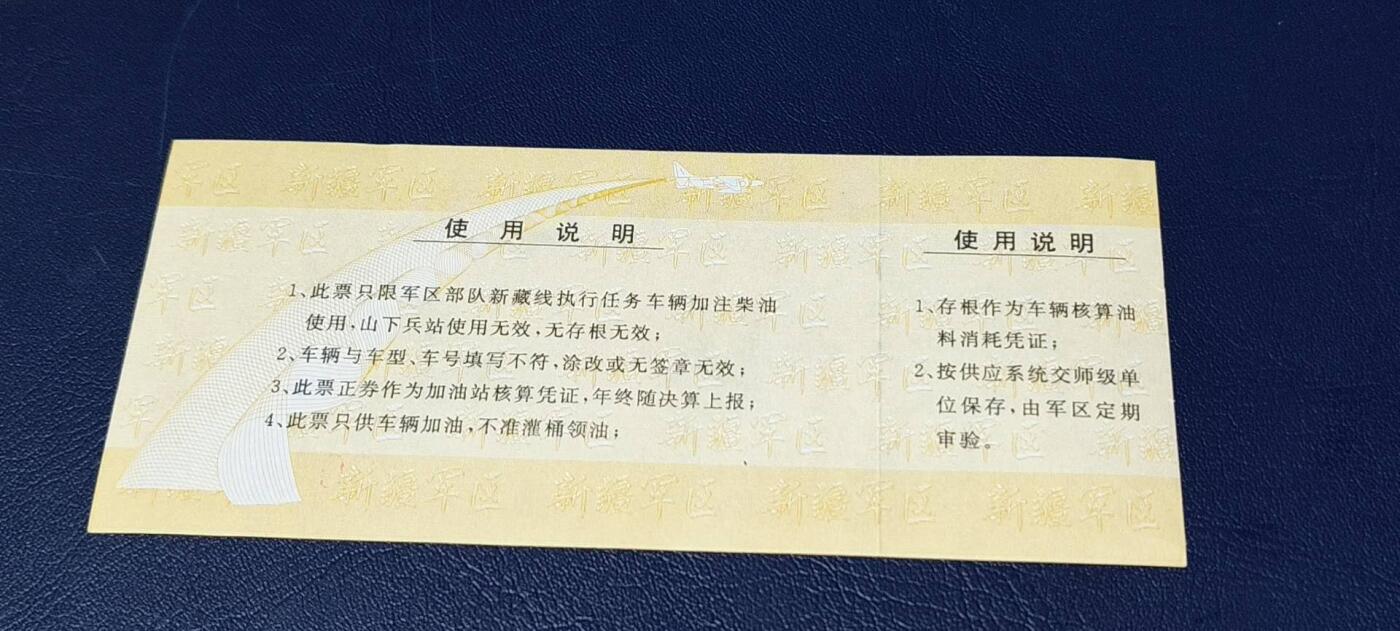 使用说明
1、此票只限军区部队新藏线执行任务车辆加注柴油
使用,山下兵站使用无效,无存根无效;
2、车辆与车型、车号填写不符,涂改或无签章无效;
3、此票正券作为加油站核算凭证,年终随决算上报;
4、此票只供车辆加油,不准灌桶领油;
使用说明
1、存根作为车辆核算油
料消耗凭证;
2、按供应系统交师级单
位保存,由军区定期
审验。
军区 新疆军区 新疆军区 新疆军区 新疆军区 新疆
新疆军区 新疆军区 新疆军区 新疆军区 新疆军区
新疆军区 新疆军区 新疆军区 新疆军区